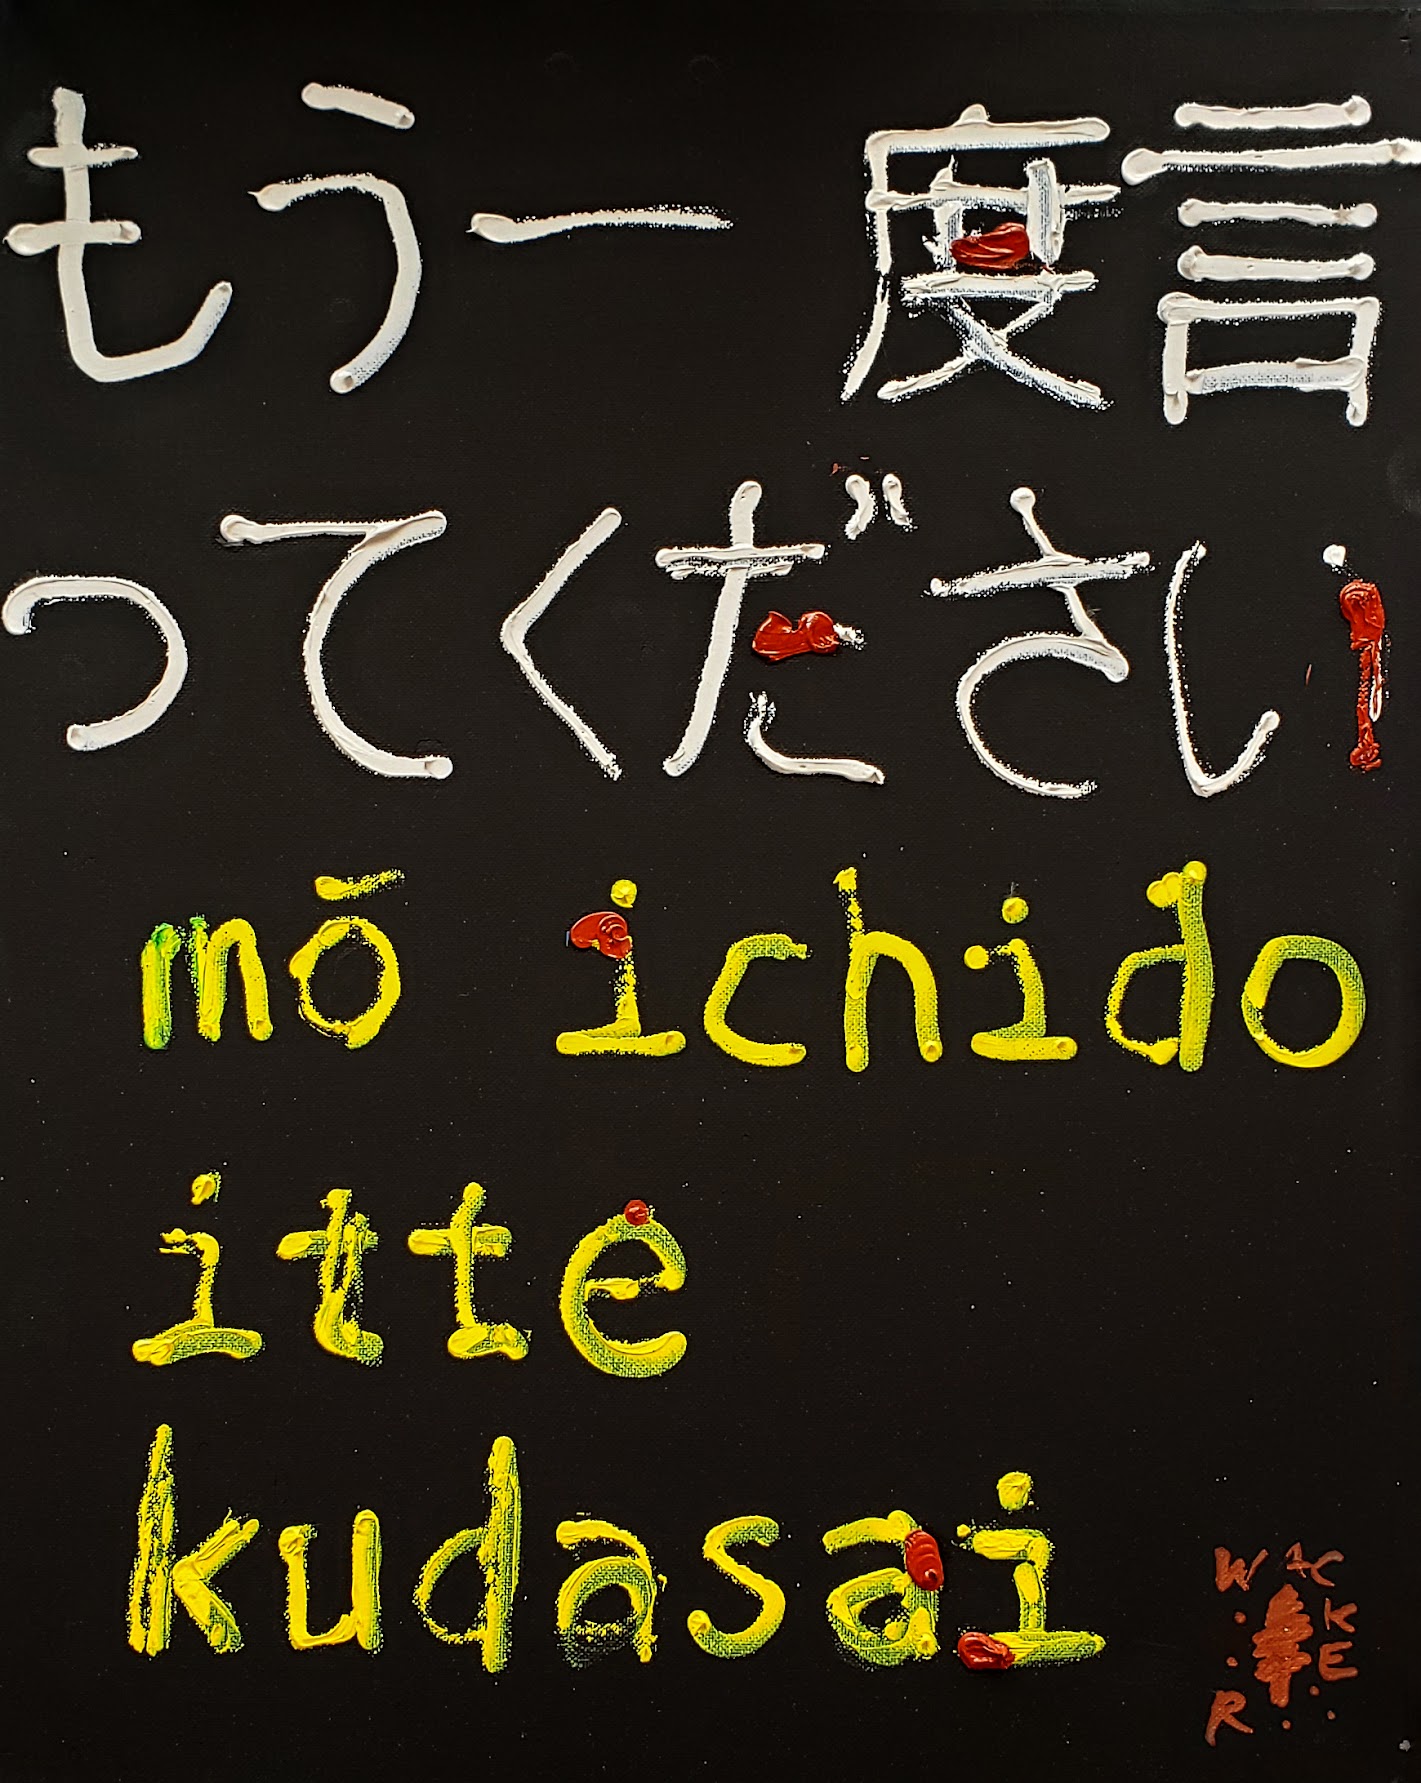 もう一度言
ってください
mō ichido
itte
kudasai
WACKER